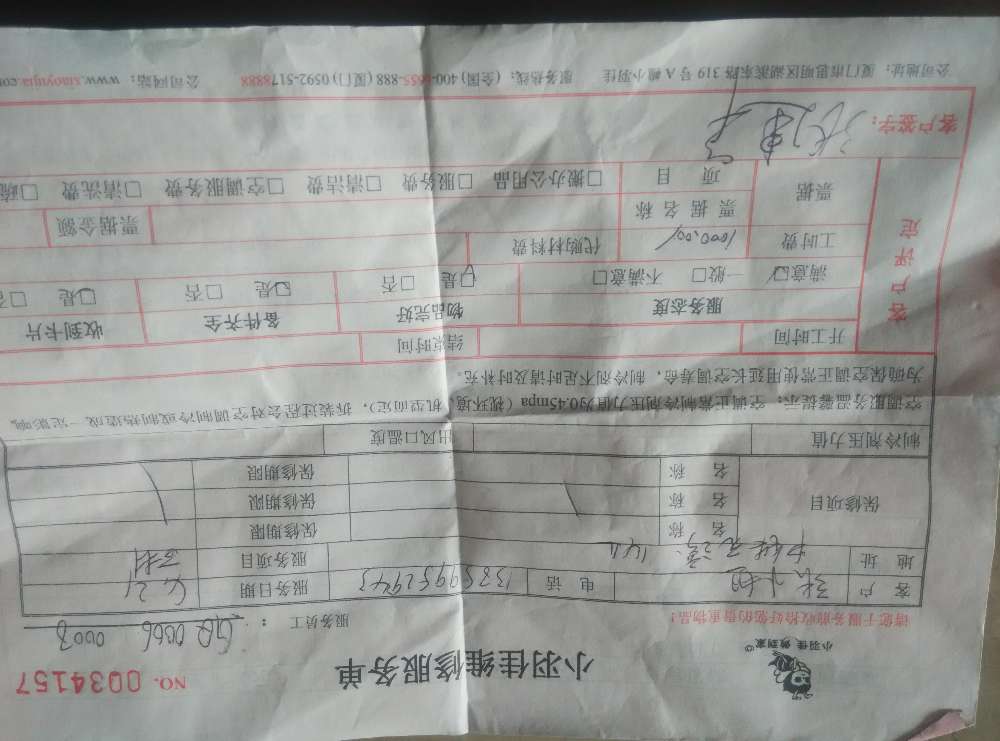 小羽佳 做到家
小羽佳维修服务单
NO. 0034157
请您于服务前收拾好您的贵重物品！
服务员工： 0066 0003
客 户 张小姐 电 话 13859952943 服务日期 6.21
地 址 14A 服务项目
保修项目 名 称 保修期限
名 称 保修期限
名 称 保修期限
制冷剂压力值 出风口温度
空调服务温馨提示：空调正常制冷剂压力值为0.45mpa（视环境、机型而定），拆装过程会对空调制冷或制热造成一定影响，
为确保空调正常使用延长空调寿命，制冷剂不足时请及时补充。
客户评定
开工时间 结束时间
服务态度 物品完好 备件齐全 收到卡片
满意☑ 一般□ 不满意□ ☑是 □否 ☑是 □否 ☑是 □否
工时费 1000.00 代购材料费
票据 票据名称 票据金额
项 目 □搬办公用品 □服务费 □清洁费 □空调服务费 □清洗费
客户签字：
公司地址：厦门市思明区湖滨东路319号A幢小羽佳 服务热线：（全国）400-0655-888（厦门）0592-5178888 公司网站：www.xiaoyujia.com